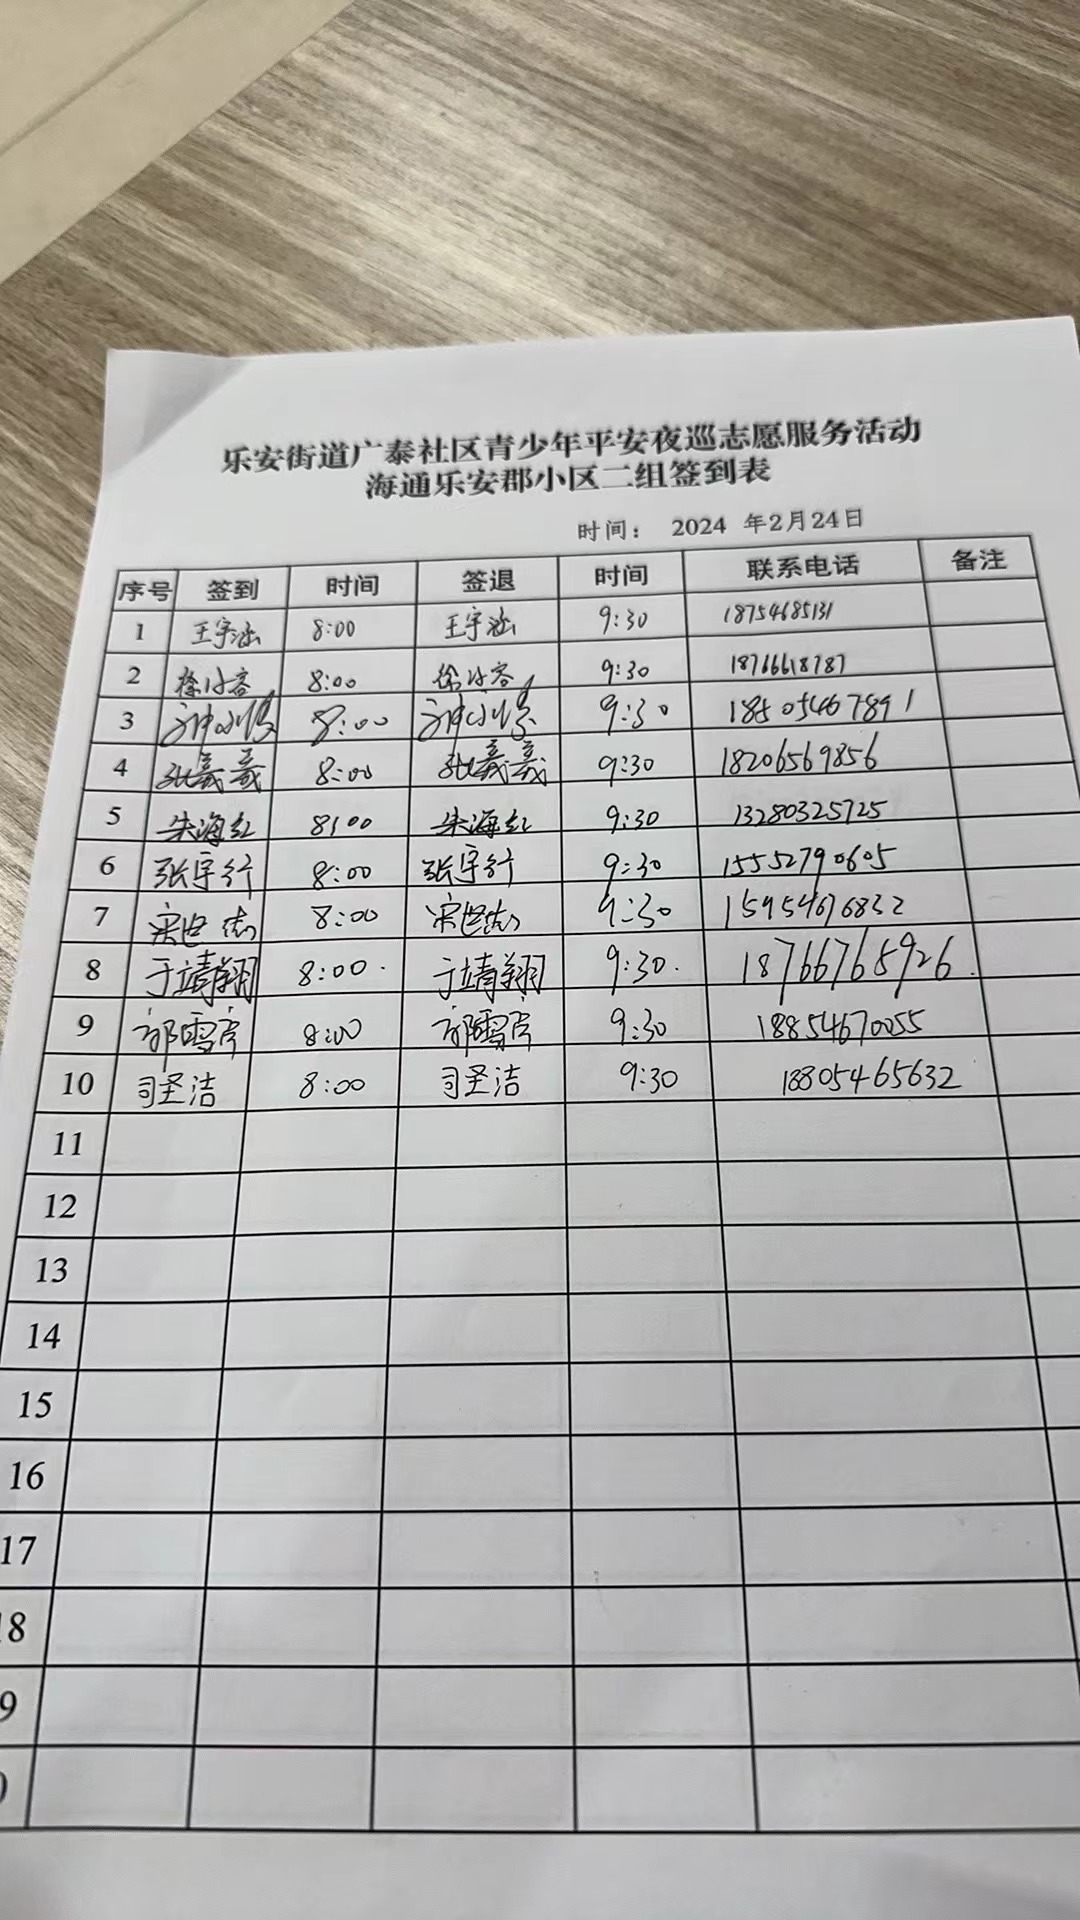 乐安街道广泰社区青少年平安夜巡志愿服务活动
海通乐安郡小区二组签到表
时间： 2024 年2月24日
序号 签到 时间 签退 时间 联系电话 备注
1 王宇涵 8:00 王宇涵 9:30 18754685131
2 8:00 9:30 18766618787
3 8:00 9:30 18505467891
4 张義義 8:00 张義義 9:30 18206569856
5 朱海红 8:00 朱海红 9:30 13280325725
6 张宇行 8:00 张宇行 9:30 15552790605
7 8:00 9:30 15954676832
8 于靖翔 8:00. 于靖翔 9:30. 18766765926.
9 8:00 9:30 18854670055
10 司圣洁 8:00 司圣洁 9:30 18805465632
11
12
13
14
15
16
17
18
9